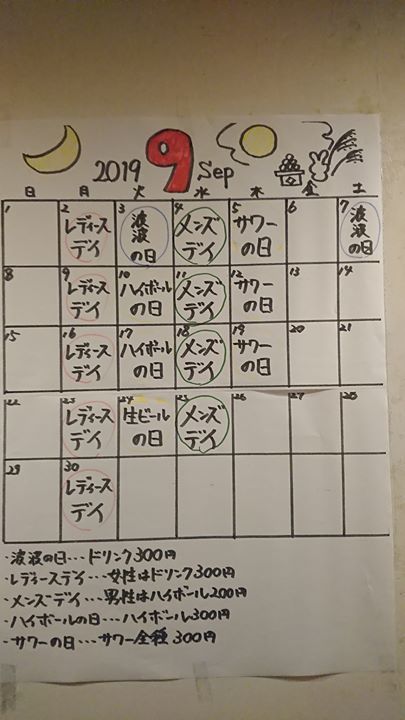 2019 9 Sep
日 月 火 水 木 金 土
1 2 3 4 5 6 7
レディース 波 メンズ サワー 波
デイ 波 デイ の日 波
の日 の日
8 9 10 11 12 13 14
レディース ハイボール メンズ サワー
デイ の日 デイ の日
15 16 17 18 19 20 21
レディース ハイボール メンズ サワー
デイ の日 デイ の日
22 23 24 25 26 27 28
レディース 生ビール メンズ
デイ の日 デイ
29 30
レディース
デイ
・波波の日…ドリンク300円
・レディースデイ…女性はドリンク300円
・メンズデイ…男性はハイボール200円
・ハイボールの日…ハイボール300円
・サワーの日…サワー全種300円